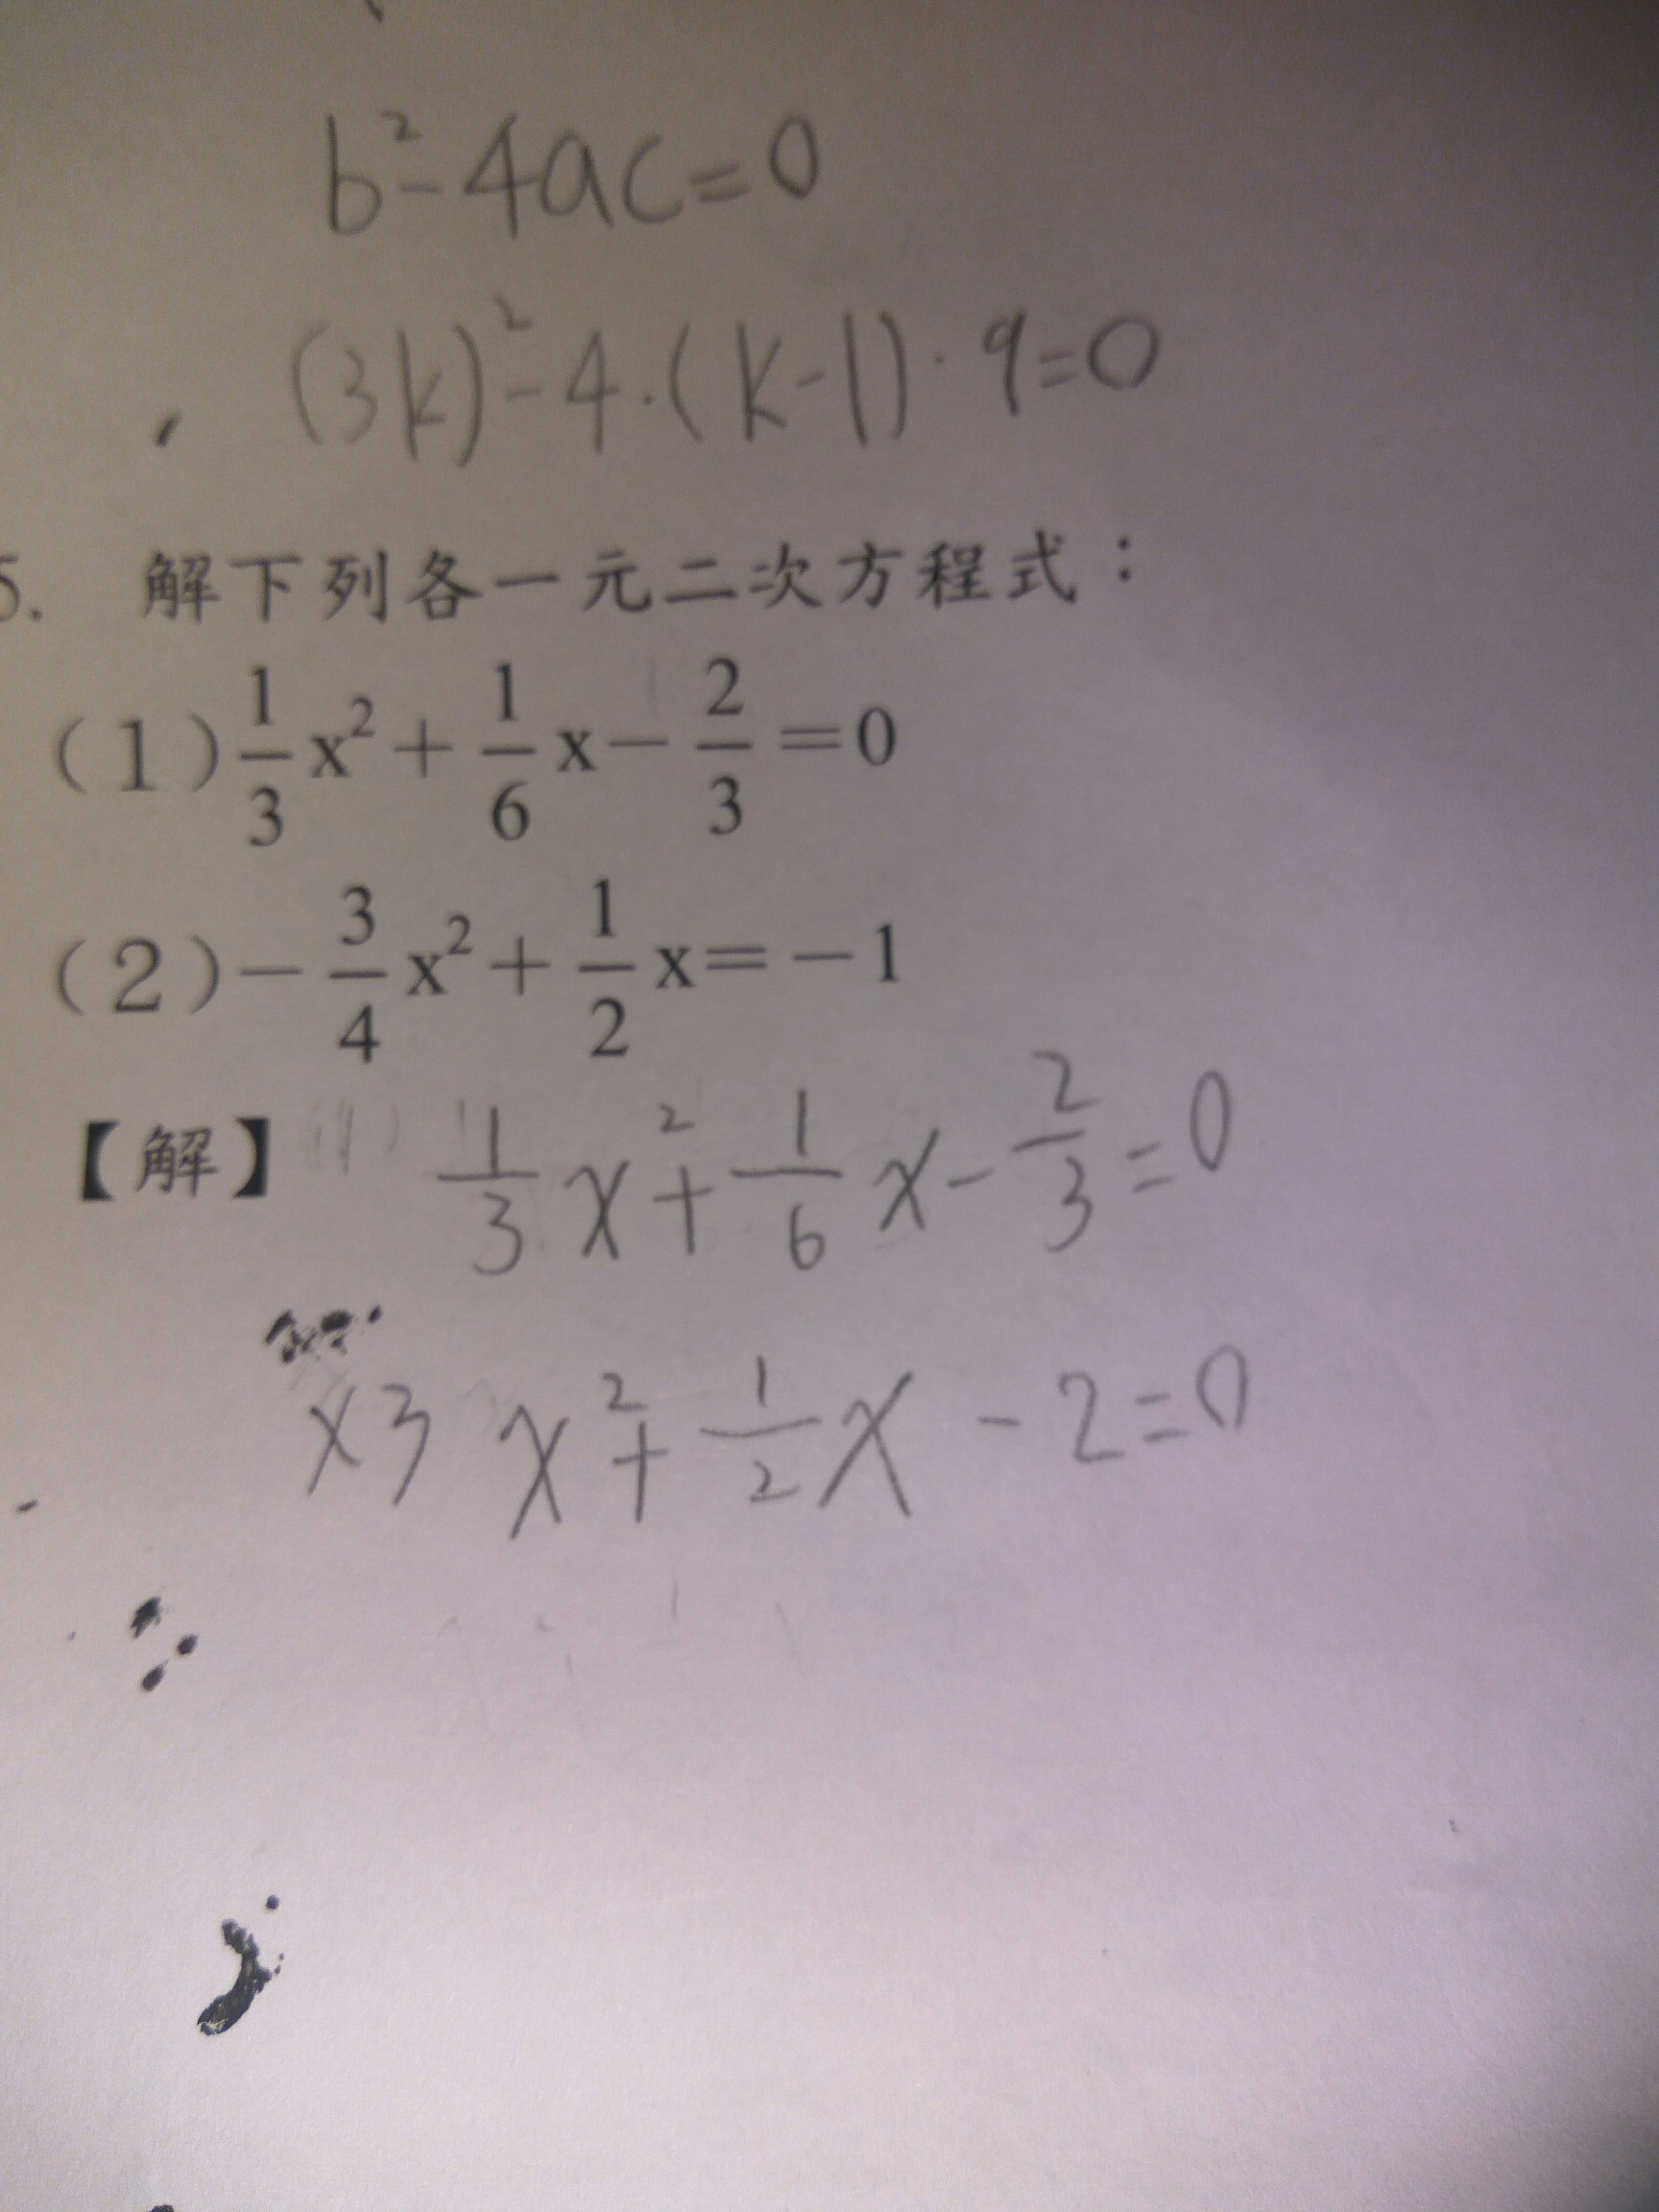 b²-4ac=0
(3k)²-4·(k-1)·9=0
5. 解下列各一元二次方程式：
(1) 1/3 x²+ 1/6 x- 2/3 =0
(2) - 3/4 x²+ 1/2 x=-1
【解】 (1) 1/3 x²+ 1/6 x- 2/3 =0
x3 x²+ 1/2 x -2=0